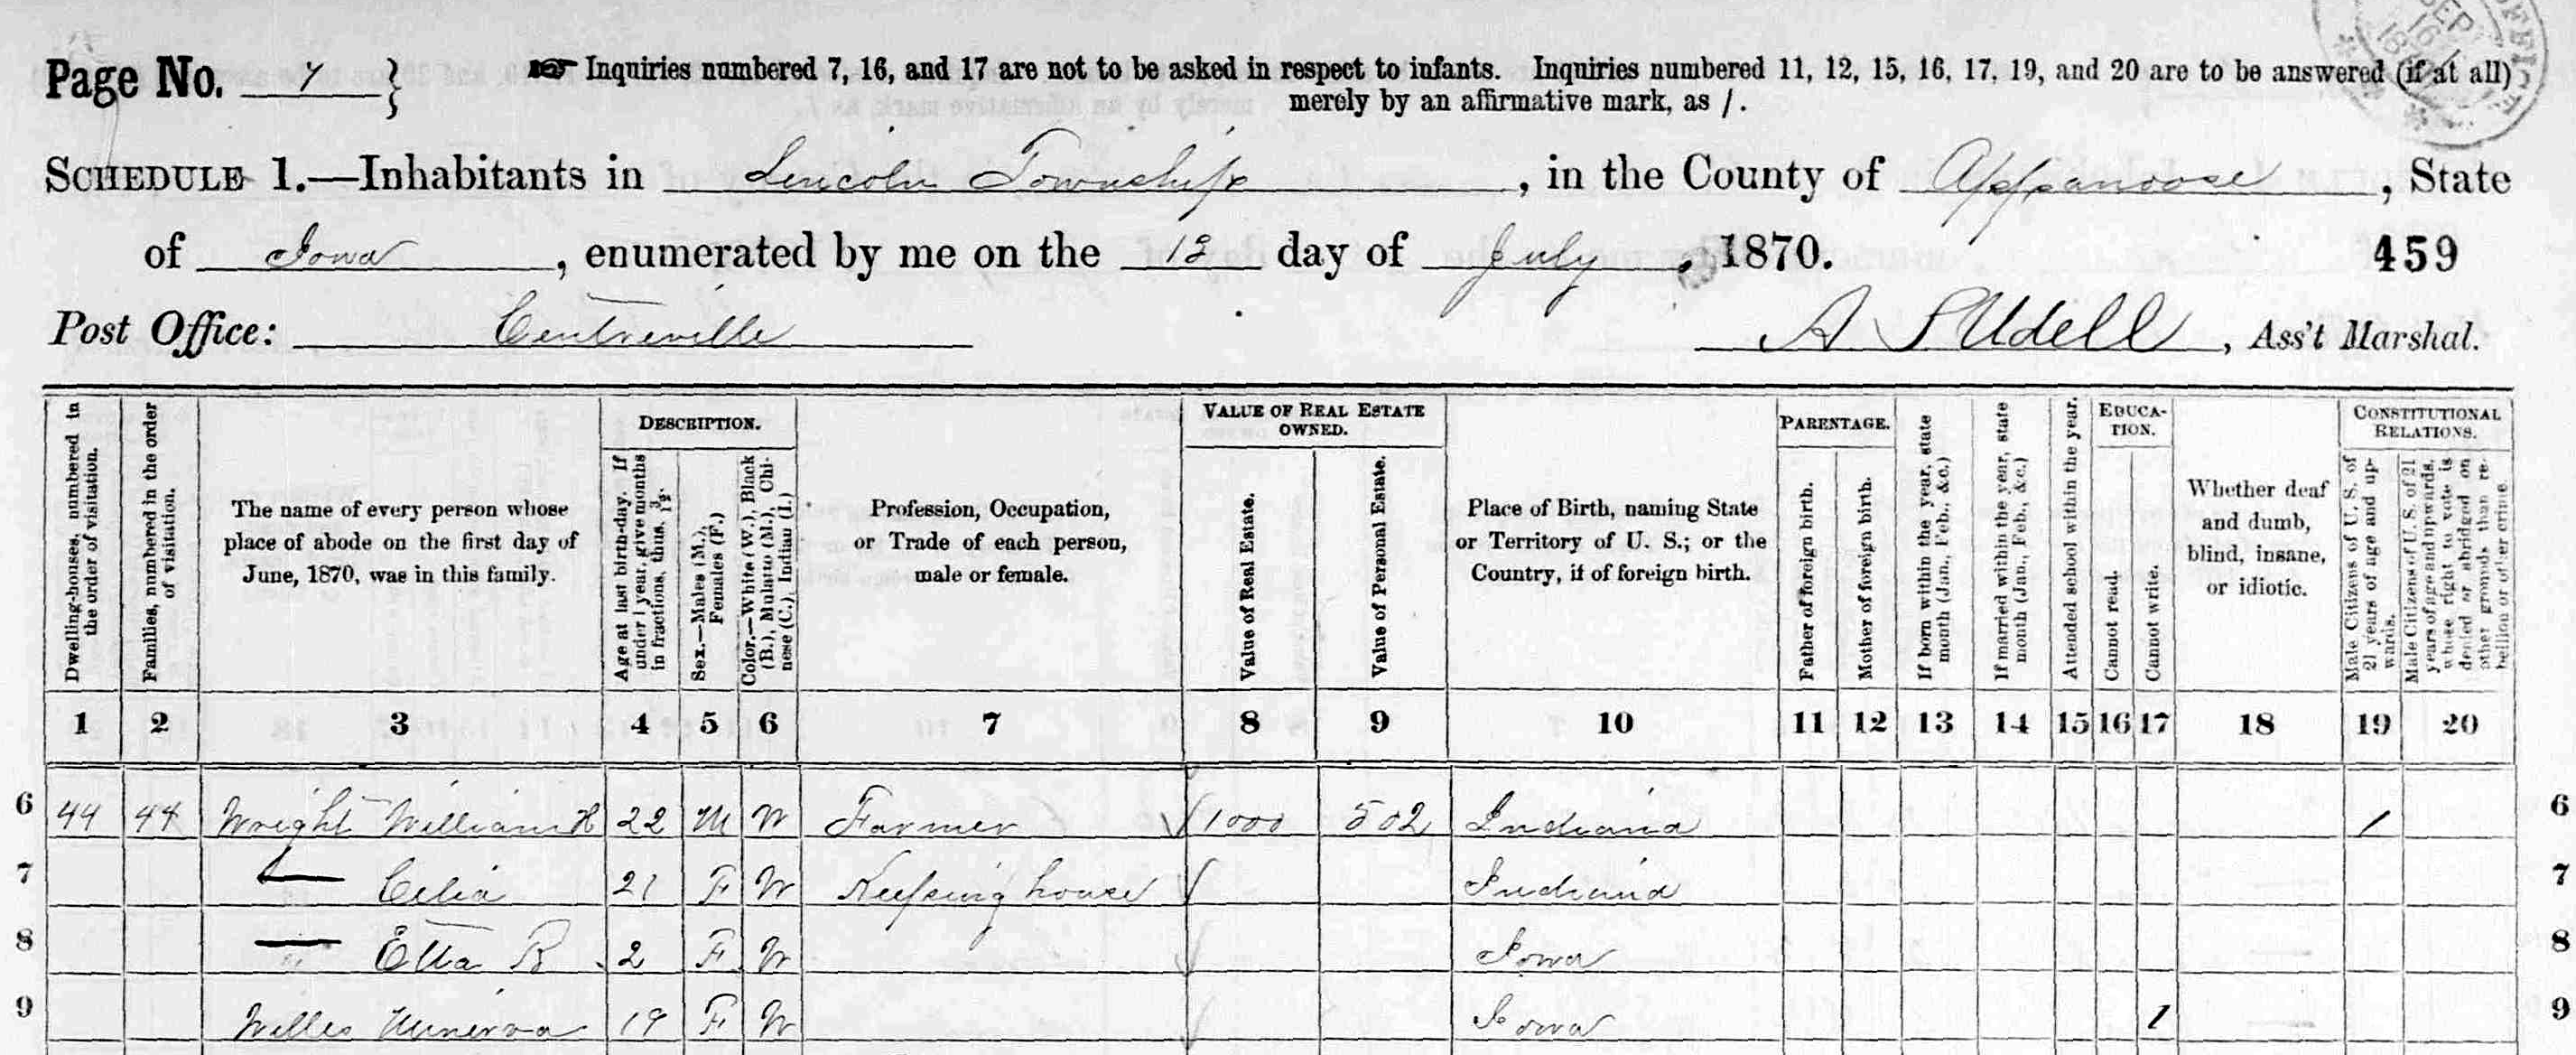 Page No. 7 }
☞ Inquiries numbered 7, 16, and 17 are not to be asked in respect to infants. Inquiries numbered 11, 12, 15, 16, 17, 19, and 20 are to be answered (if at all)
merely by an affirmative mark, as /.
SCHEDULE 1.—Inhabitants in Lincoln Township, in the County of Appanoose, State
of Iowa, enumerated by me on the day of July, 1870.
459
Post Office: Centreville
A S Udell, Ass't Marshal.
Dwelling-houses, numbered in the order of visitation.
Families, numbered in the order of visitation.
The name of every person whose
place of abode on the first day of
June, 1870, was in this family.
DESCRIPTION.
Age at last birth-day. If under 1 year, give months in fractions, thus, 3/12.
Sex.—Males (M.), Females (F.)
Color.—White (W.), Black (B.), Mulatto (M.), Chinese (C.), Indian (I.)
Profession, Occupation,
or Trade of each person,
male or female.
VALUE OF REAL ESTATE
OWNED.
Value of Real Estate.
Value of Personal Estate.
Place of Birth, naming State
or Territory of U. S.; or the
Country, if of foreign birth.
PARENTAGE.
Father of foreign birth.
Mother of foreign birth.
If born within the year, state month (Jan., Feb., &c.)
If married within the year, state month (Jan., Feb., &c.)
Attended school within the year.
EDUCA-
TION.
Cannot read.
Cannot write.
Whether deaf
and dumb,
blind, insane,
or idiotic.
CONSTITUTIONAL
RELATIONS.
Male Citizens of U. S. of 21 years of age and upwards.
Male Citizens of U. S. of 21 years of age and upwards, whose right to vote is denied or abridged on other grounds than rebellion or other crime.
1 2 3 4 5 6 7 8 9 10 11 12 13 14 15 16 17 18 19 20
6 44 44 Wright William H 22 M W Farmer 1000 502 Indiana / 6
7 — Celia 21 F W Keeping house Indiana 7
8 — Etta R 2 F W Iowa 8
9 Minerva 19 F W Iowa 1 9